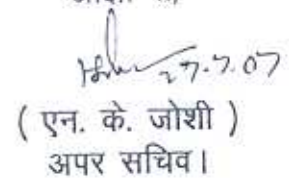 27.7.07
( एन. के. जोशी )
अपर सचिव।